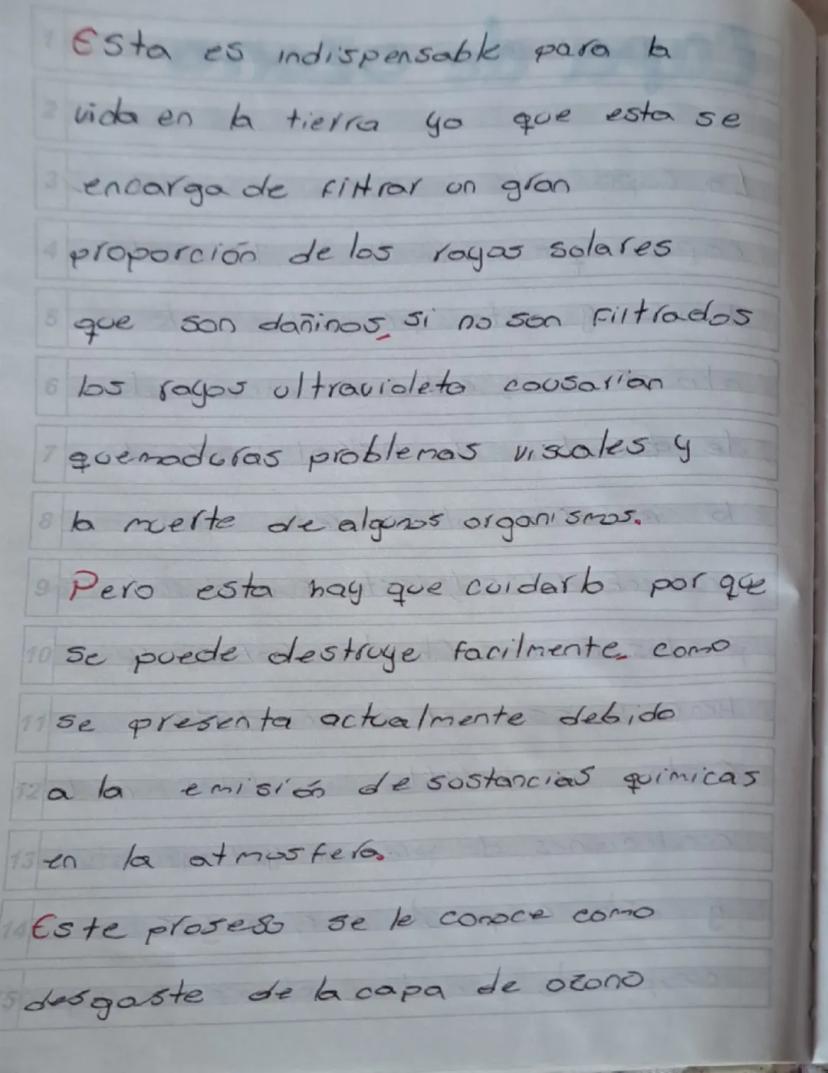 Esta es indispensable para la
vida en la tierra ya que esta se
encarga de filtrar un gran
proporción de los rayas solares
que son dañinos, si no son filtrados
los rayos ultravioleta causarían
quemaduras problemas visuales y
la muerte de algunos organismos.
Pero esta hay que cuidarlo por que
se puede destruye facilmente, como
se presenta actualmente debido
a la emisión de sustancias químicas
en la atmosfera.
Este proseso se le conoce como
desgaste de la capa de ozono